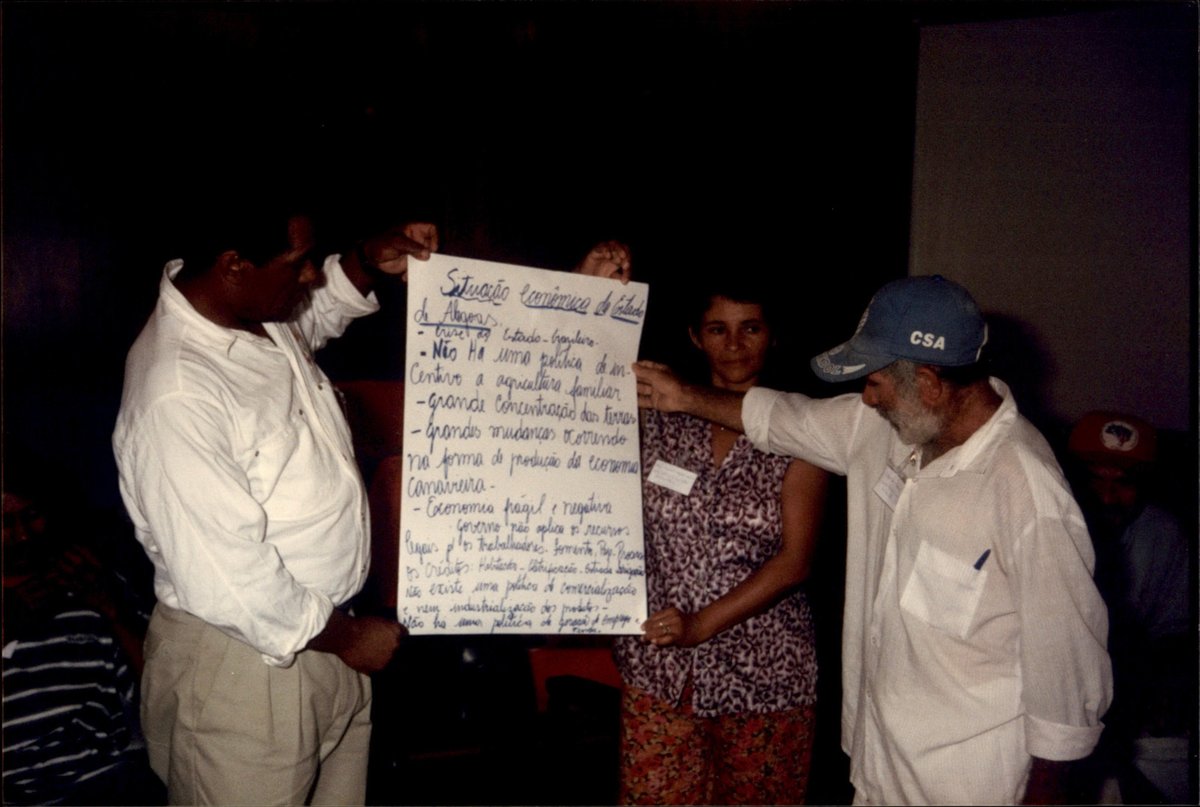 Situação econômica do Estado
de Alagoas.
- Crise do Estado Brazileiro
- Não Há uma política de in-
Centivo a agricultura familiar
- grande Concentração das terras
- Grandes mudanças ocorrendo
na forma de produção da economia
Canavieira -
- Economia frágil e negativa
Governo não aplica os recursos
legais p/ os trabalhadores. Fomento,
Os Créditos: Habitação - Eletrificação - Estrada
Não existe uma política de comercialização
e nem industrialização dos produtos -
Não ha uma política de geração de Emprego e
renda.
CSA